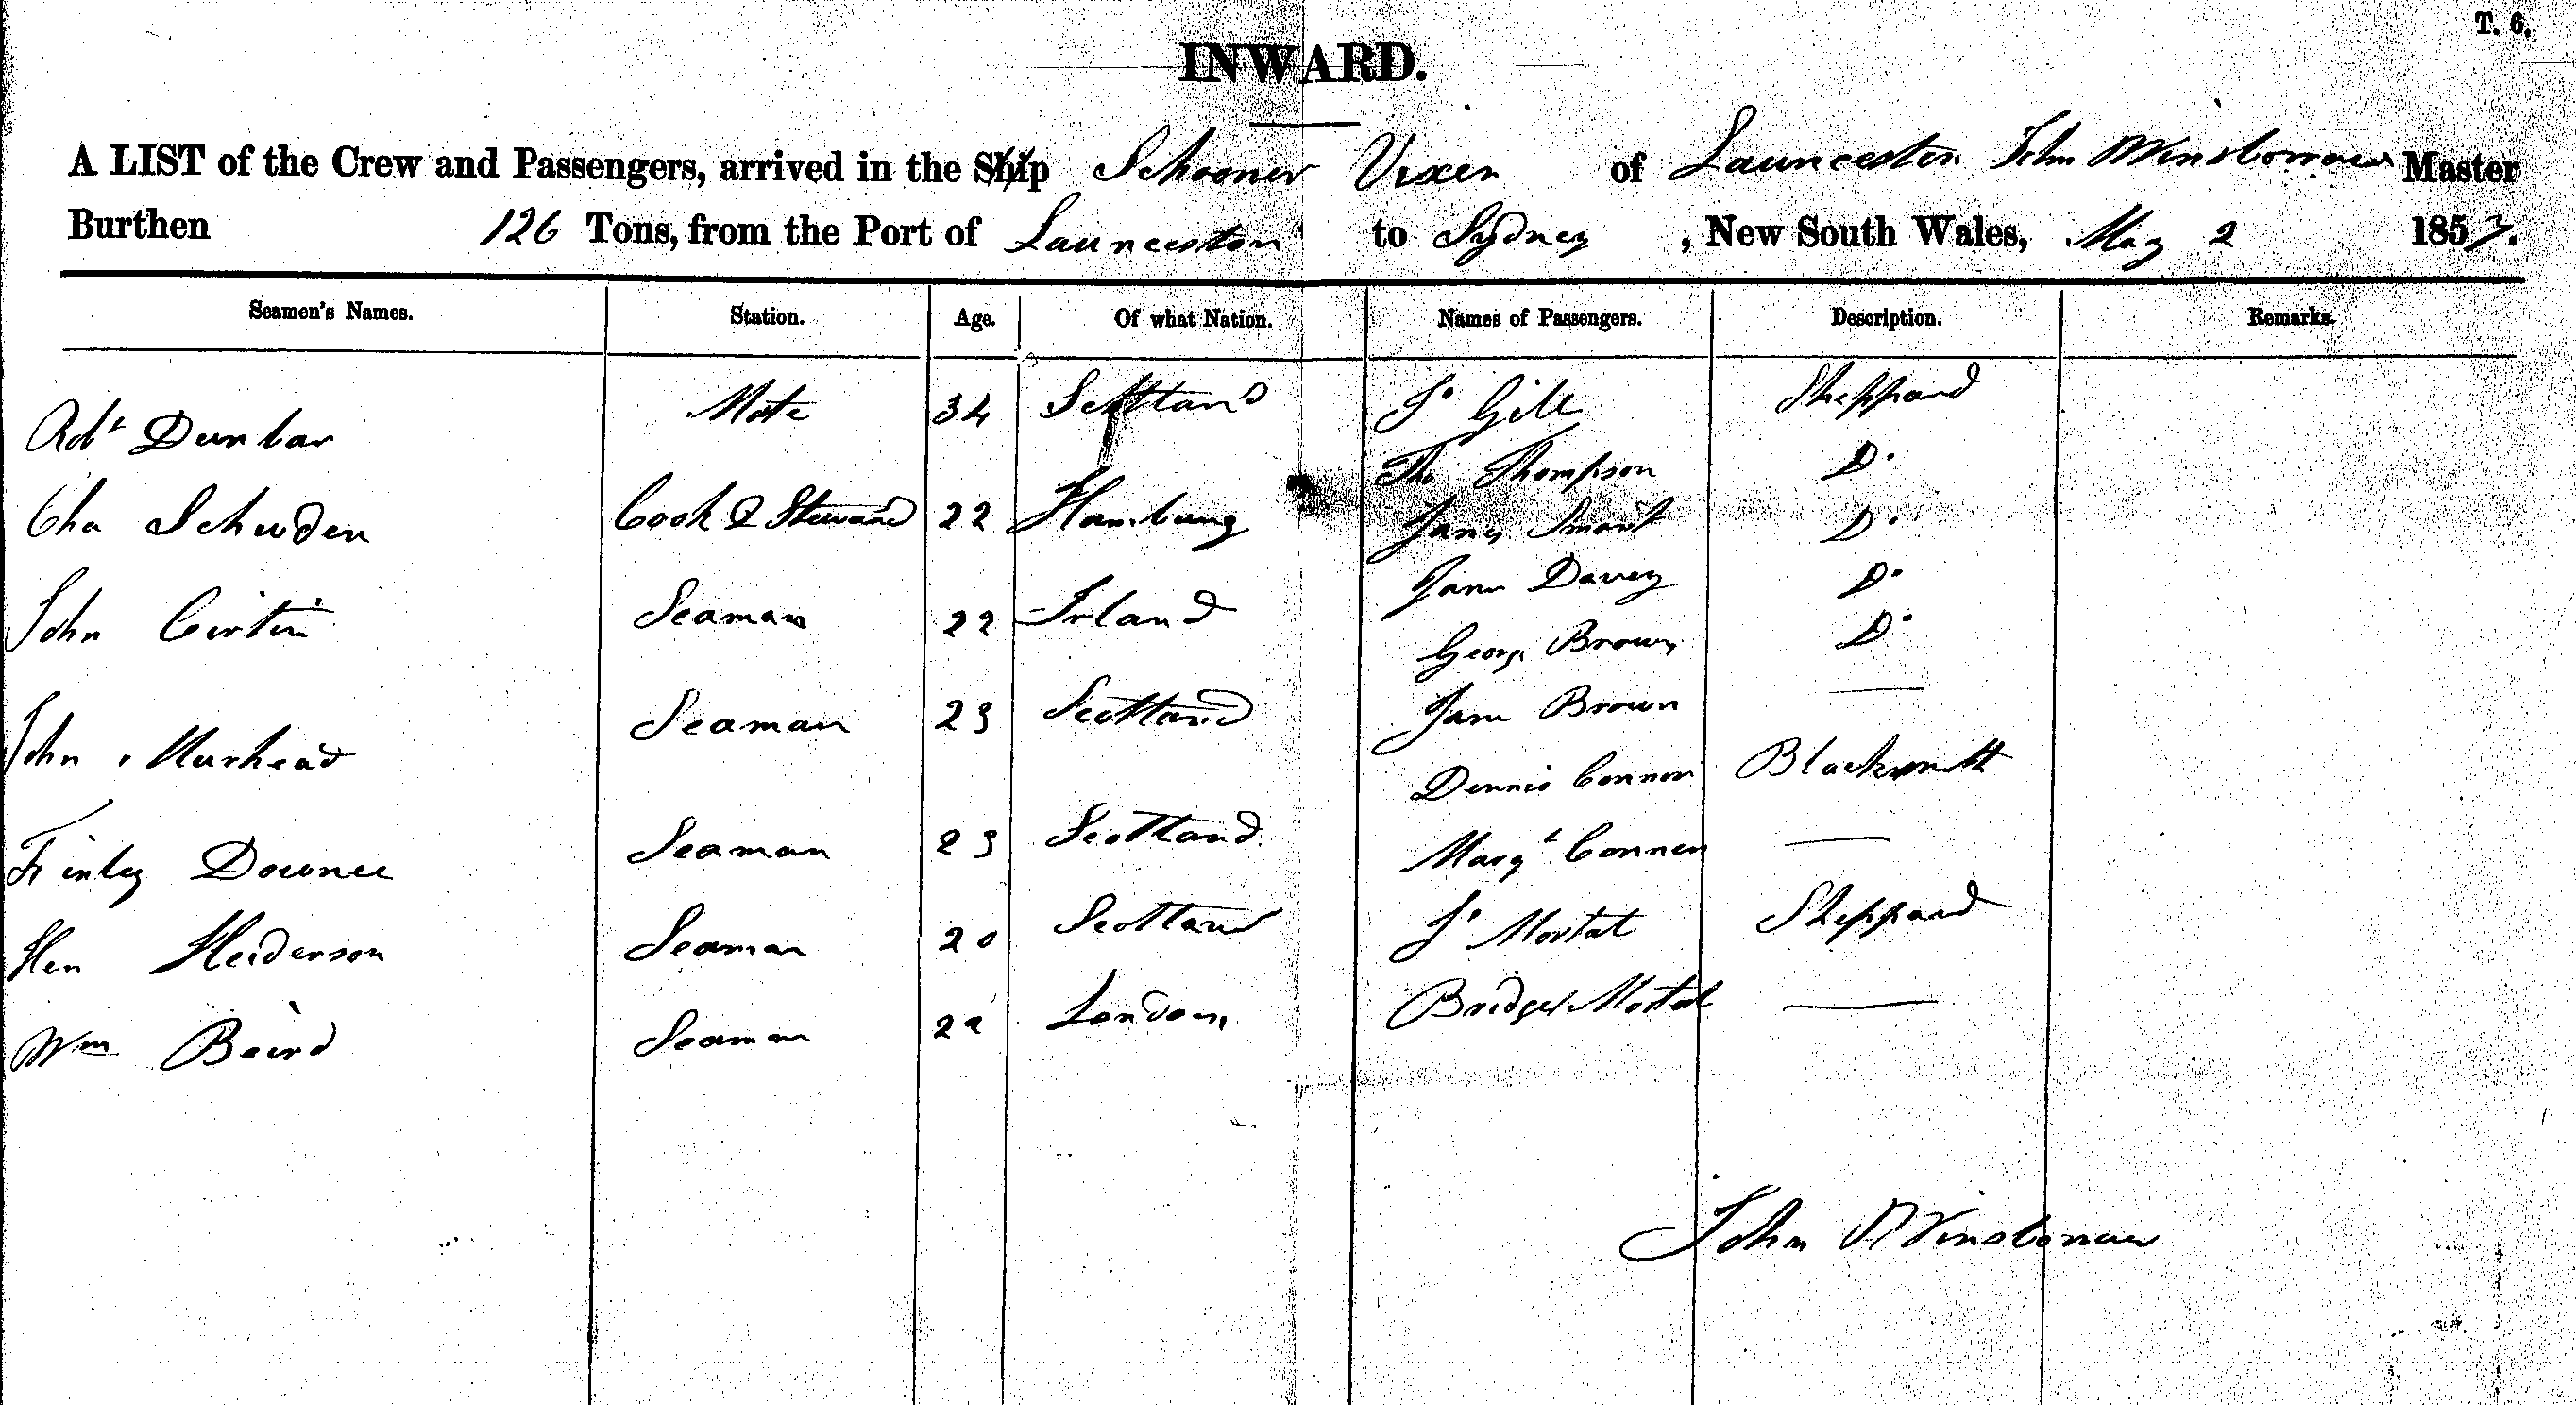 T. 6.
INWARD.
A LIST of the Crew and Passengers, arrived in the Ship Schooner Vixen of Launceston John Winstonaw Master
Burthen 126 Tons, from the Port of Launceston to Sydney, New South Wales, May 2 1857.
Seamen's Names. Station. Age. Of what Nation. Names of Passengers. Description. Remarks.
Robt Dunbar Mate 34 Scotland Js Gill Sheppard
Tho Thompson Do
Cha Schuden Cook & Steward 22 Hamburg James Smart Do
Jane Davey Do
John Cirtin Seaman 22 Irland George Brown Do
John Murhead Seaman 23 Scotland Jane Brown —
Dennis Connor Blacksmith
Finley Downee Seaman 23 Scotland Margt Conner —
Hen Heiderson Seaman 20 Scotland Js Mortat Sheppard
Wm Beird Seaman 22 London Bridget Mortat —
John Winstonaw